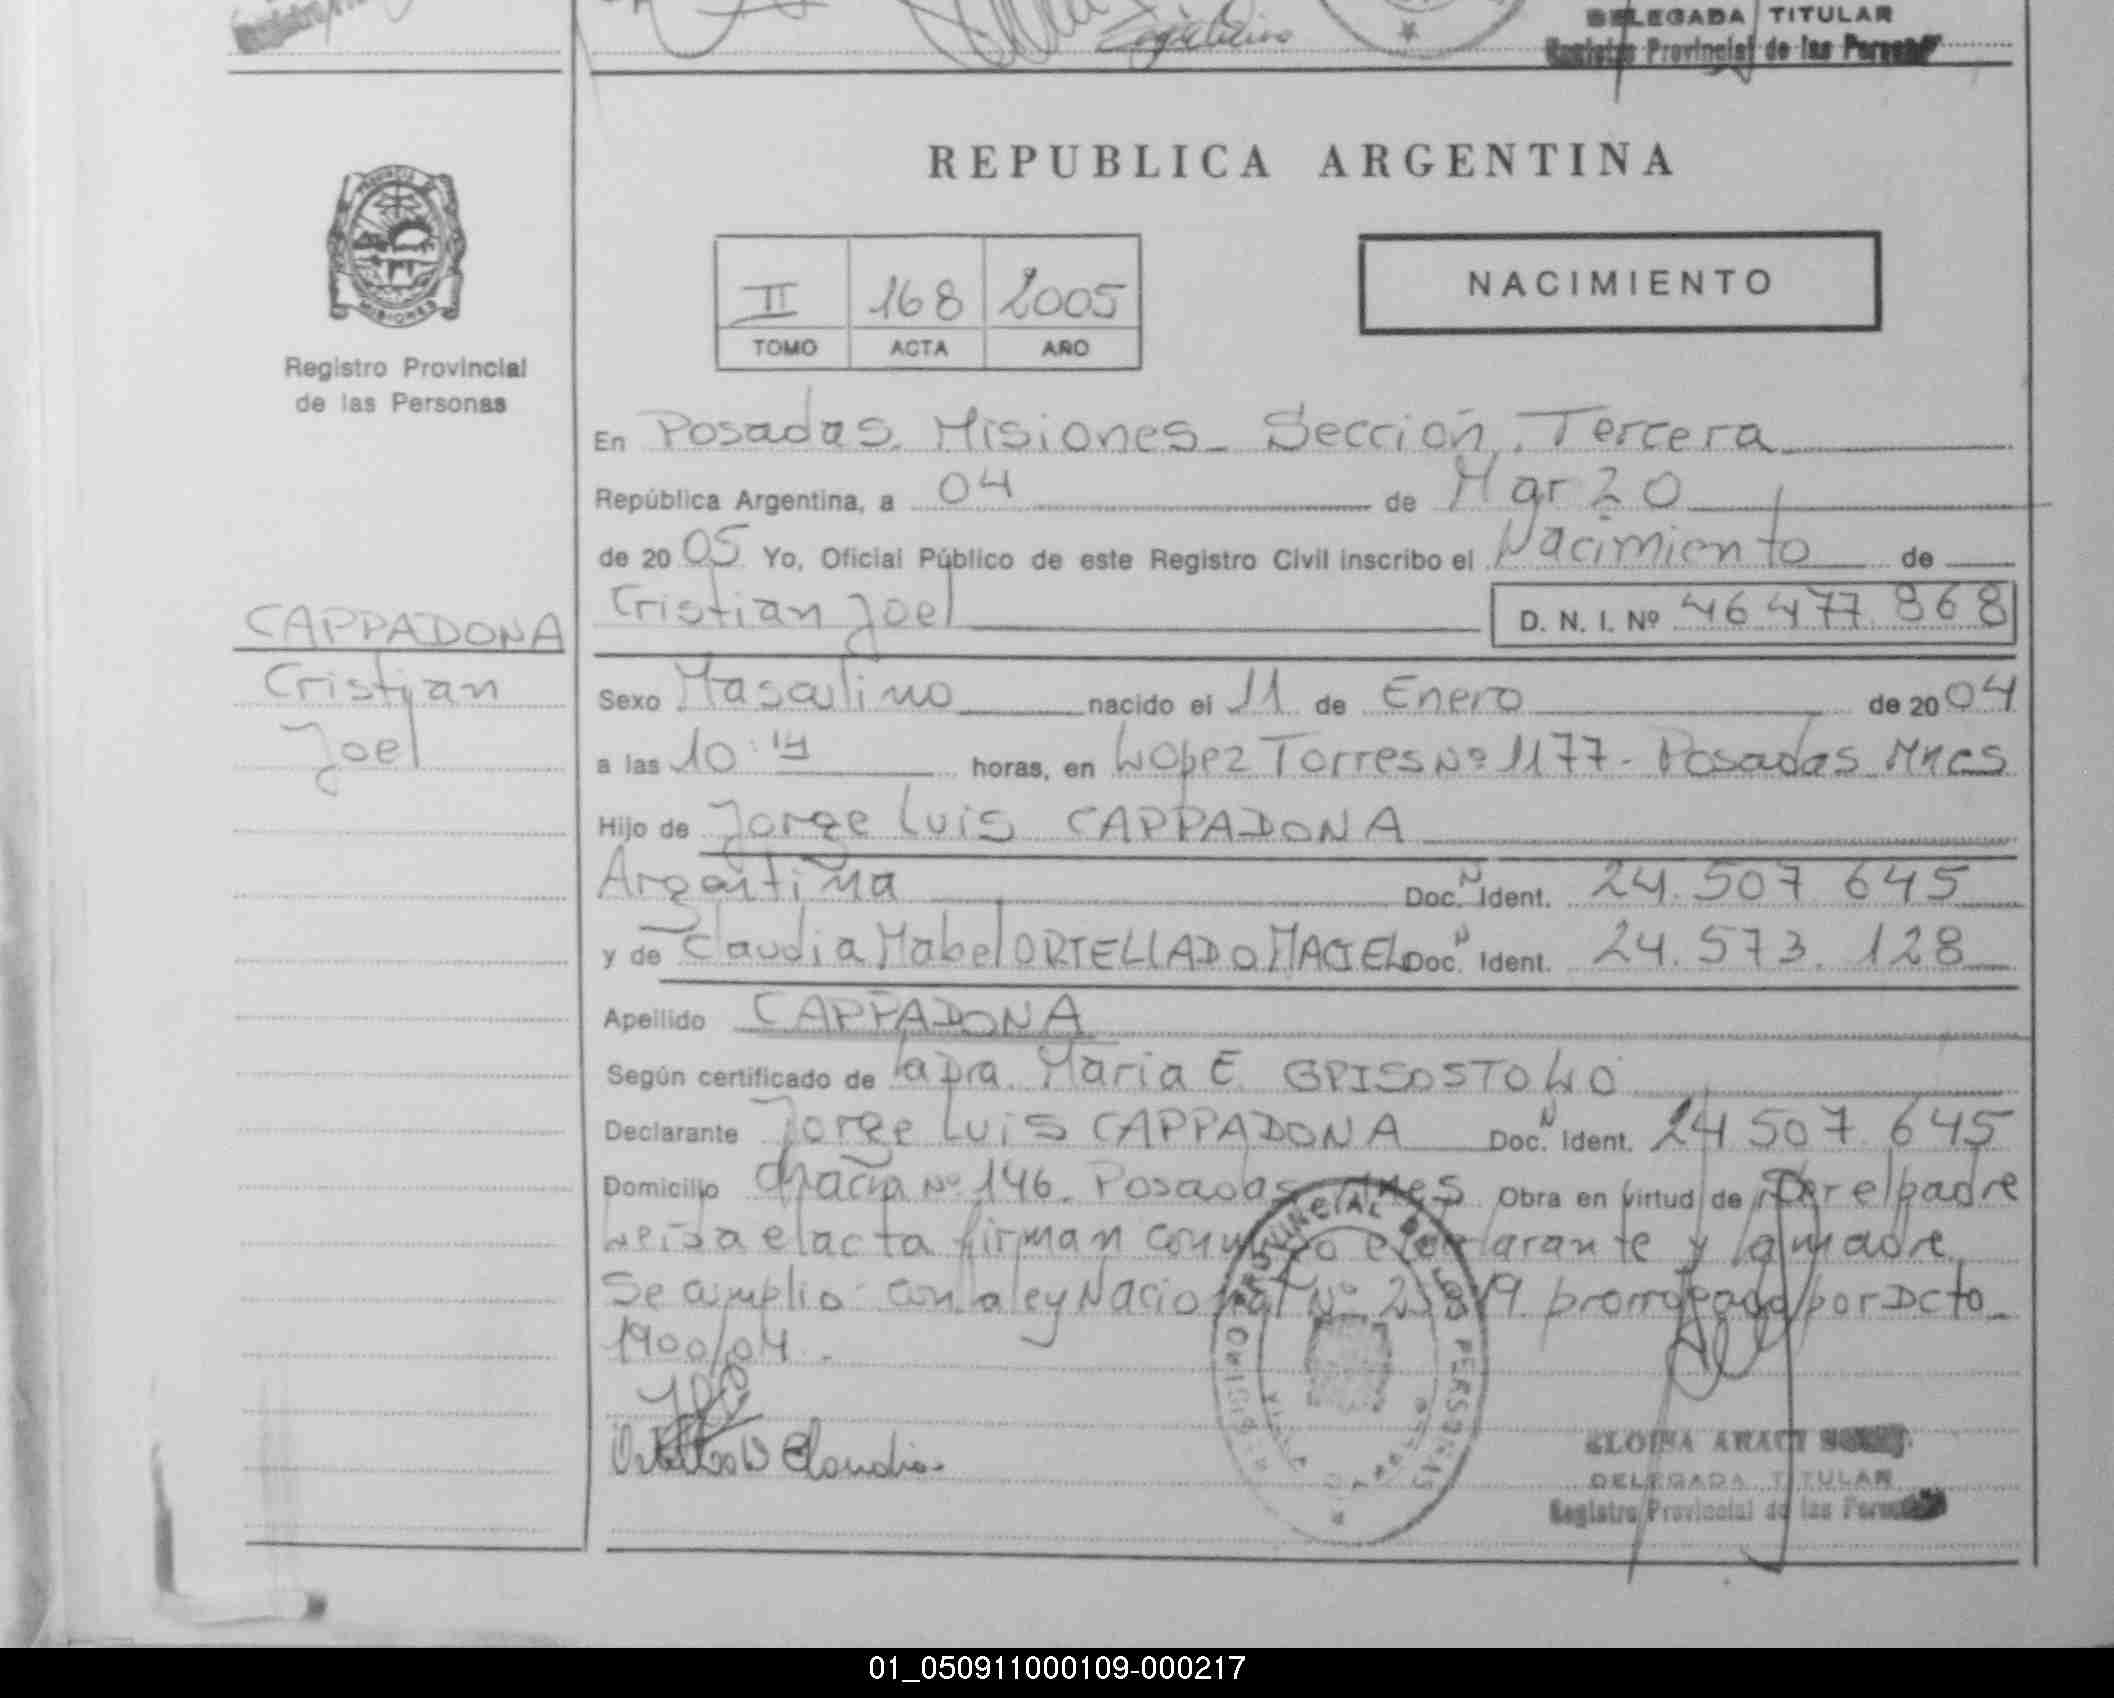 DELEGADA TITULAR
Registro Provincial de las Personas
REPUBLICA ARGENTINA
II 168 2005
TOMO ACTA AÑO
NACIMIENTO
PROVINCIA DE
MISIONES
Registro Provincial
de las Personas
CAPPADONA
Cristian
Joel
En Posadas. Misiones - Sección. Tercera
República Argentina, a 04 de Marzo
de 2005 Yo, Oficial Público de este Registro Civil inscribo el Nacimiento de
Cristian Joel D. N. I. Nº 46 477 868
Sexo Masculino nacido el 11 de Enero de 2004
a las 10:14 horas, en Lopez Torres Nº 1177 - Posadas Mnes
Hijo de Jorge Luis CAPPADONA
Argentina Doc. N Ident. 24.507 645
y de Claudia Mabel ORTELLADO MACIEL Doc. N Ident. 24.573.128
Apellido CAPPADONA
Según certificado de la Dra. Maria E
Declarante Jorge Luis CAPPADONA Doc. N Ident. 24 507 645
Domicilio Nº 146. Posadas Mnes Obra en virtud de Ser el padre
Leida el acta firman conmigo el declarante y la madre
Se cumplio con la ley Nacional Nº prorrogada por Dcto
1900/04.
Claudia
PROVINCIAL DE LAS PERSONAS
ELOISA ARACI
DELEGADA TITULAR
Registro Provincial de las Personas
01_050911000109-000217